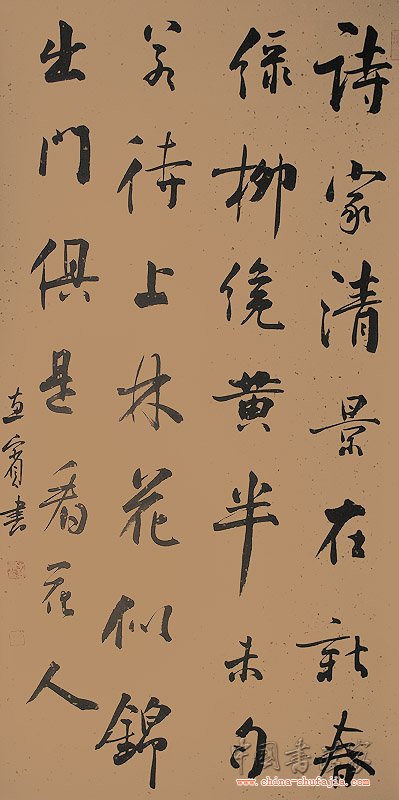 詩家清景在新春
綠柳纔黃半未勻
若待上林花似錦
出門俱是看花人
賓書
中國書法家
www.china-shufajia.com